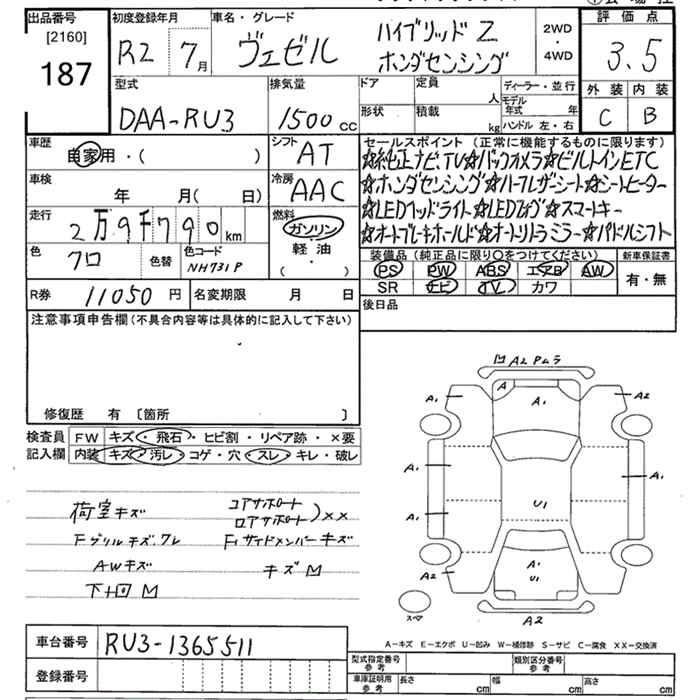 出品番号 初度登録年月 車名・グレード 評価点
[2160]
187
R2 7月
ヴェゼル ハイブリッドZ
ホンダセンシング
2WD
・
4WD
3.5
外装 内装
C B
型式 排気量 ドア 定員 人 ディーラー・並行
DAA-RU3 1500cc
形状 積載 kg モデル年式 年
ハンドル 左・右
車歴 シフト セールスポイント (正常に機能するものに限ります)
自家用・( ) AT
☆純正ナビTV☆バックカメラ☆ビルトインETC
車検 年 月(日) 冷房 AAC
☆ホンダセンシング☆ハーフレザーシート☆シートヒーター
☆LEDヘッドライト☆LEDフォグ☆スマートキー
☆オートブレーキホールド☆オートリトラミラー☆パドルシフト
走行 2万9千790km
燃料 ガソリン
軽油
・( )
色 クロ 色替 色コード NH731P
装備品(純正品に限り○をつけてください) 新車保証書
PS PW ABS エアB AW
SR ナビ TV カワ
有・無
R券 11050円 名変期限 月 日
後日品
注意事項申告欄(不具合内容等は具体的に記入して下さい)
修復歴 有 [箇所 ]
検査員 FW キズ・飛石・ヒビ割・リペア跡・×要
記入欄 内装 キズ・汚レ・コゲ・穴・スレ・キレ・破レ
荷室キズ コアサポート
ロアサポート )××
Fグリルキズ.ワレ Fiサイドメンバーキズ
AWキズ キズ凹
下廻凹
凹A2Pムラ
A A1
A1 A2
A1 A1
A1 U1
A2 A1
U1
スペア A2
A-キズ E-エクボ U-凹み W-補修跡 S-サビ C-腐食 XX-交換済
車台番号 RU3-1365511
登録番号
型式指定番号 参考 類別区分番号 参考
車庫証明用 参考 長さ cm 幅 cm 高さ cm